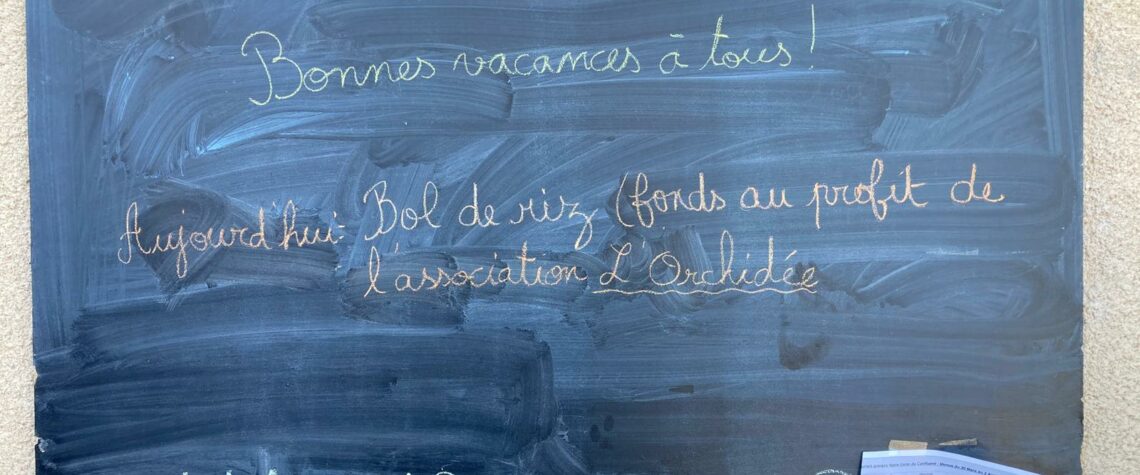 Bonnes vacances à tous !
Aujourd'hui: Bol de riz (fonds au profit de
l'association L'Orchidée